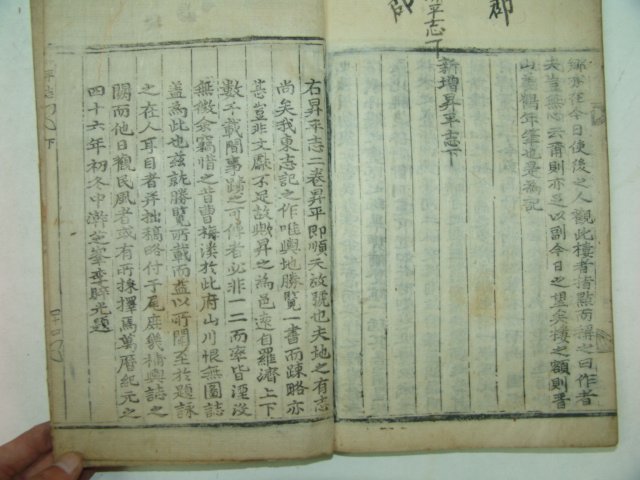 鄕亦在今日使後之人觀此樓者指點而謂之曰作者
夫豈無心云爾則亦足以副今日之望矣樓之額則晋
山姜鶴年筆也是爲記
新增昇平志下
右昇平志二卷昇平卽順天故號也夫地之有志
尚矣我東志記之作唯輿地勝覽一書而踈略亦
甚豈非文獻不足故歟昇之爲邑遠自羅濟上下
數千載間事蹟之可傳者必非一二而率皆湮沒
無徵余竊惜之昔曺梅溪於此府山川恨無圖誌
盖爲此也玆就勝覽所載而益以所聞至於題詠
之在人耳目者幷拙稿略付于尾庶幾補輿誌之
闕而他日觀民風者或有所採擇焉萬曆紀元之
四十六年初冬中澣芝峯李睟光題
昇平志下
郡